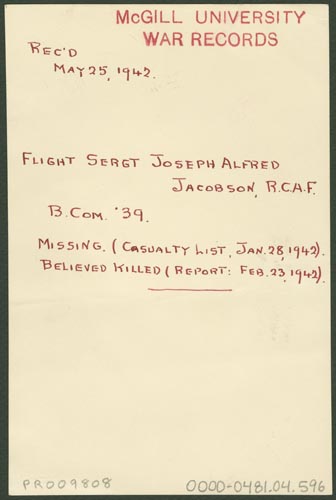 McGILL UNIVERSITY
WAR RECORDS
REC'D
MAY 25, 1942.
FLIGHT SERGT JOSEPH ALFRED
JACOBSON, R.C.A.F.
B.COM. '39.
MISSING. (CASUALTY LIST, JAN. 28, 1942).
BELIEVED KILLED (REPORT: FEB. 23, 1942).
PR009808
0000-0481.04.596